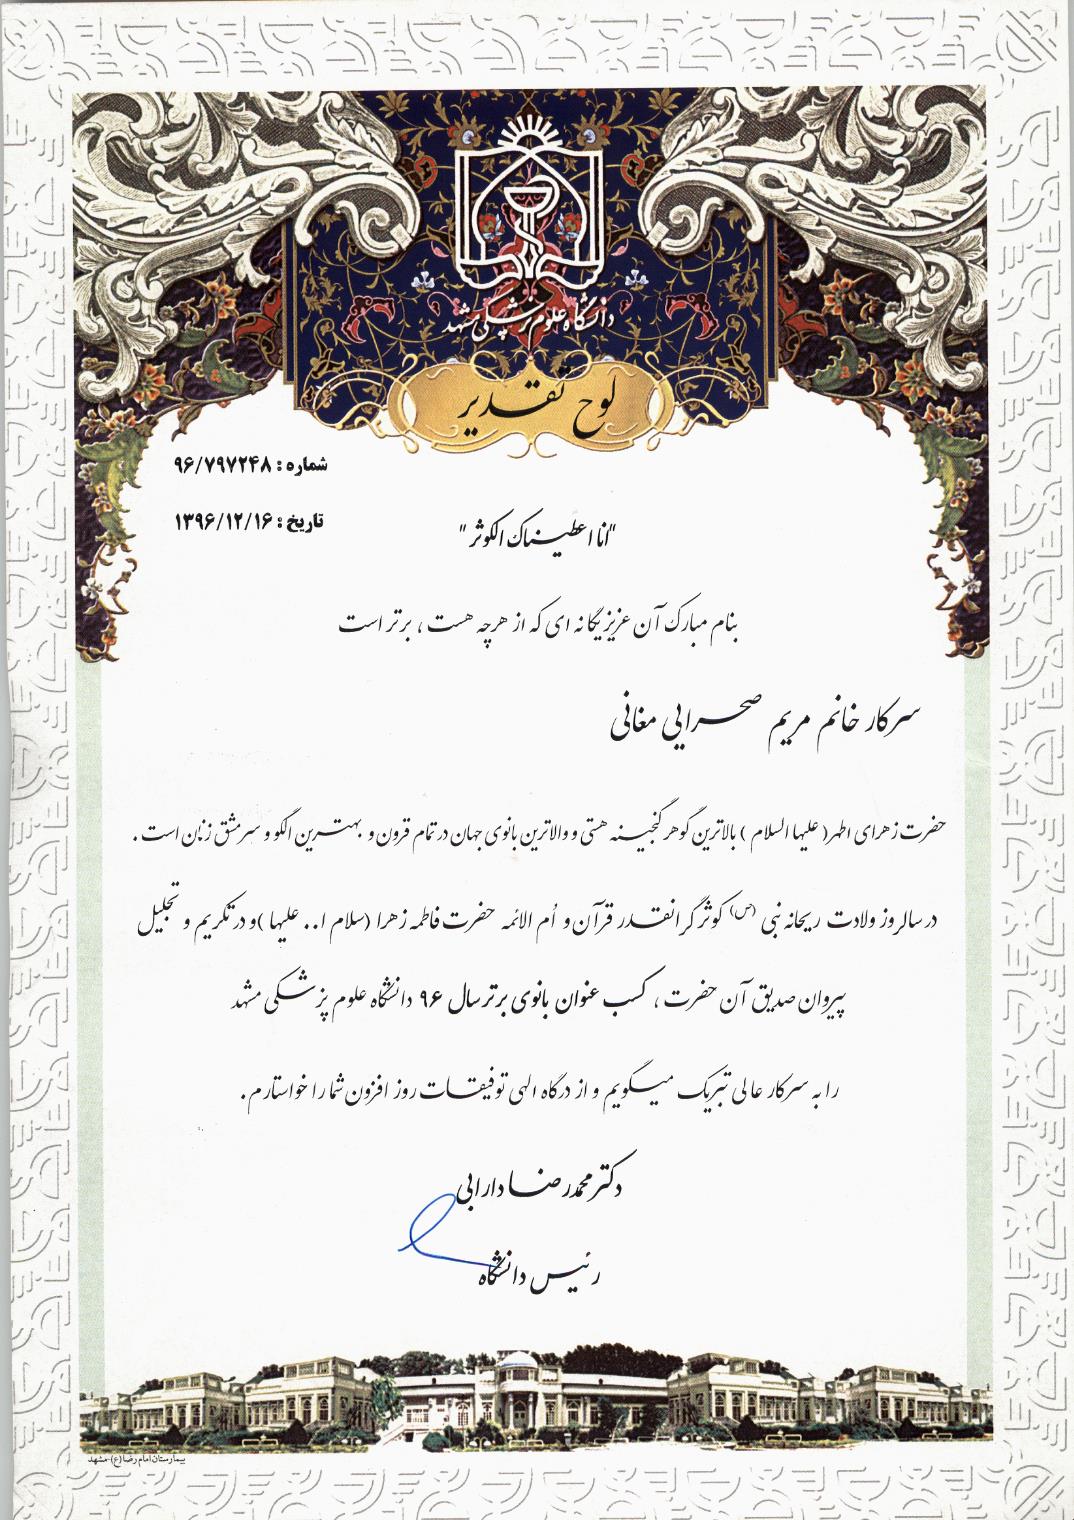 دانشگاه علوم پزشکی مشهد
لوح تقدیر
شماره : ۹۶/۷۹۷۲۴۸
تاریخ : ۱۳۹۶/۱۲/۱۶
"انا اعطیناک الکوثر"
بنام مبارک آن عزیز یگانه ای که از هرچه هست ، برتر است
سرکار خانم مریم صحرایی مغانی
حضرت زهرای اطهر( علیها السلام ) بالاترین گوهر گنجینه هستی و والاترین بانوی جهان در تمام قرون و بهترین الگو و سرمشق زنان است .
در سالروز ولادت ریحانه نبی (ص) کوثر گرانقدر قرآن و أم الائمه حضرت فاطمه زهرا (سلام ا.. علیها )و در تکریم و تجلیل
پیروان صدیق آن حضرت ، کسب عنوان بانوی برتر سال ۹۶ دانشگاه علوم پزشکی مشهد
را به سرکار عالی تبریک میگویم و از درگاه الهی توفیقات روز افزون شما را خواستارم.
دکتر محمدرضا دارابی
رئیس دانشگاه
بیمارستان امام رضا(ع)-مشهد